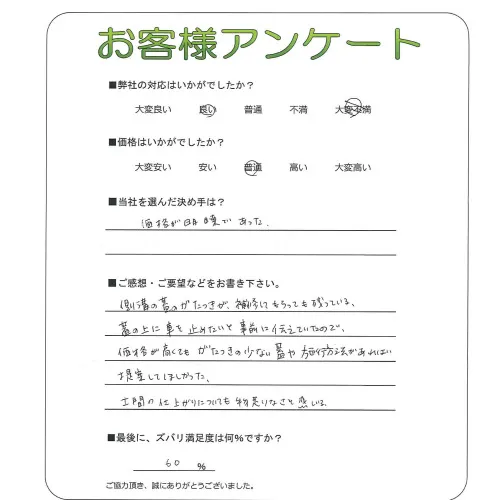 お客様アンケート
■弊社の対応はいかがでしたか？
大変良い 良い 普通 不満 大変不満
■価格はいかがでしたか？
大変安い 安い 普通 高い 大変高い
■当社を選んだ決め手は？
価格が明瞭であった。
■ご感想・ご要望などをお書き下さい。
側溝の蓋のがたつきが、補修してもらっても残っている、
蓋の上に車を止めたいと事前に伝えていたので、
価格が高くてもがたつきの少ない蓋や施行方法があれば
提案してほしかった、
土間の仕上がりについても物足りなさを感じる。
■最後に、ズバリ満足度は何%ですか？
60 %
ご協力頂き、誠にありがとうございました。